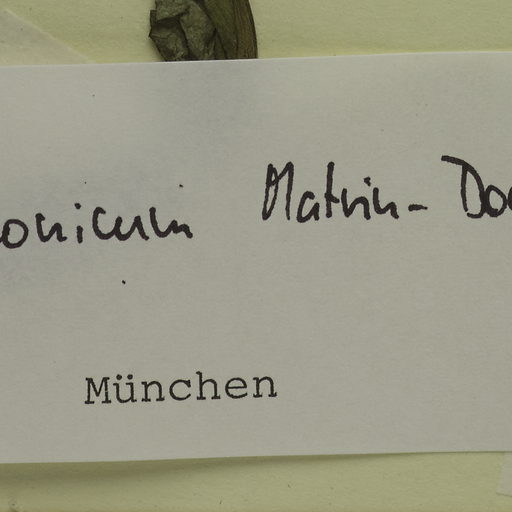 onicum Matrin- Do
München